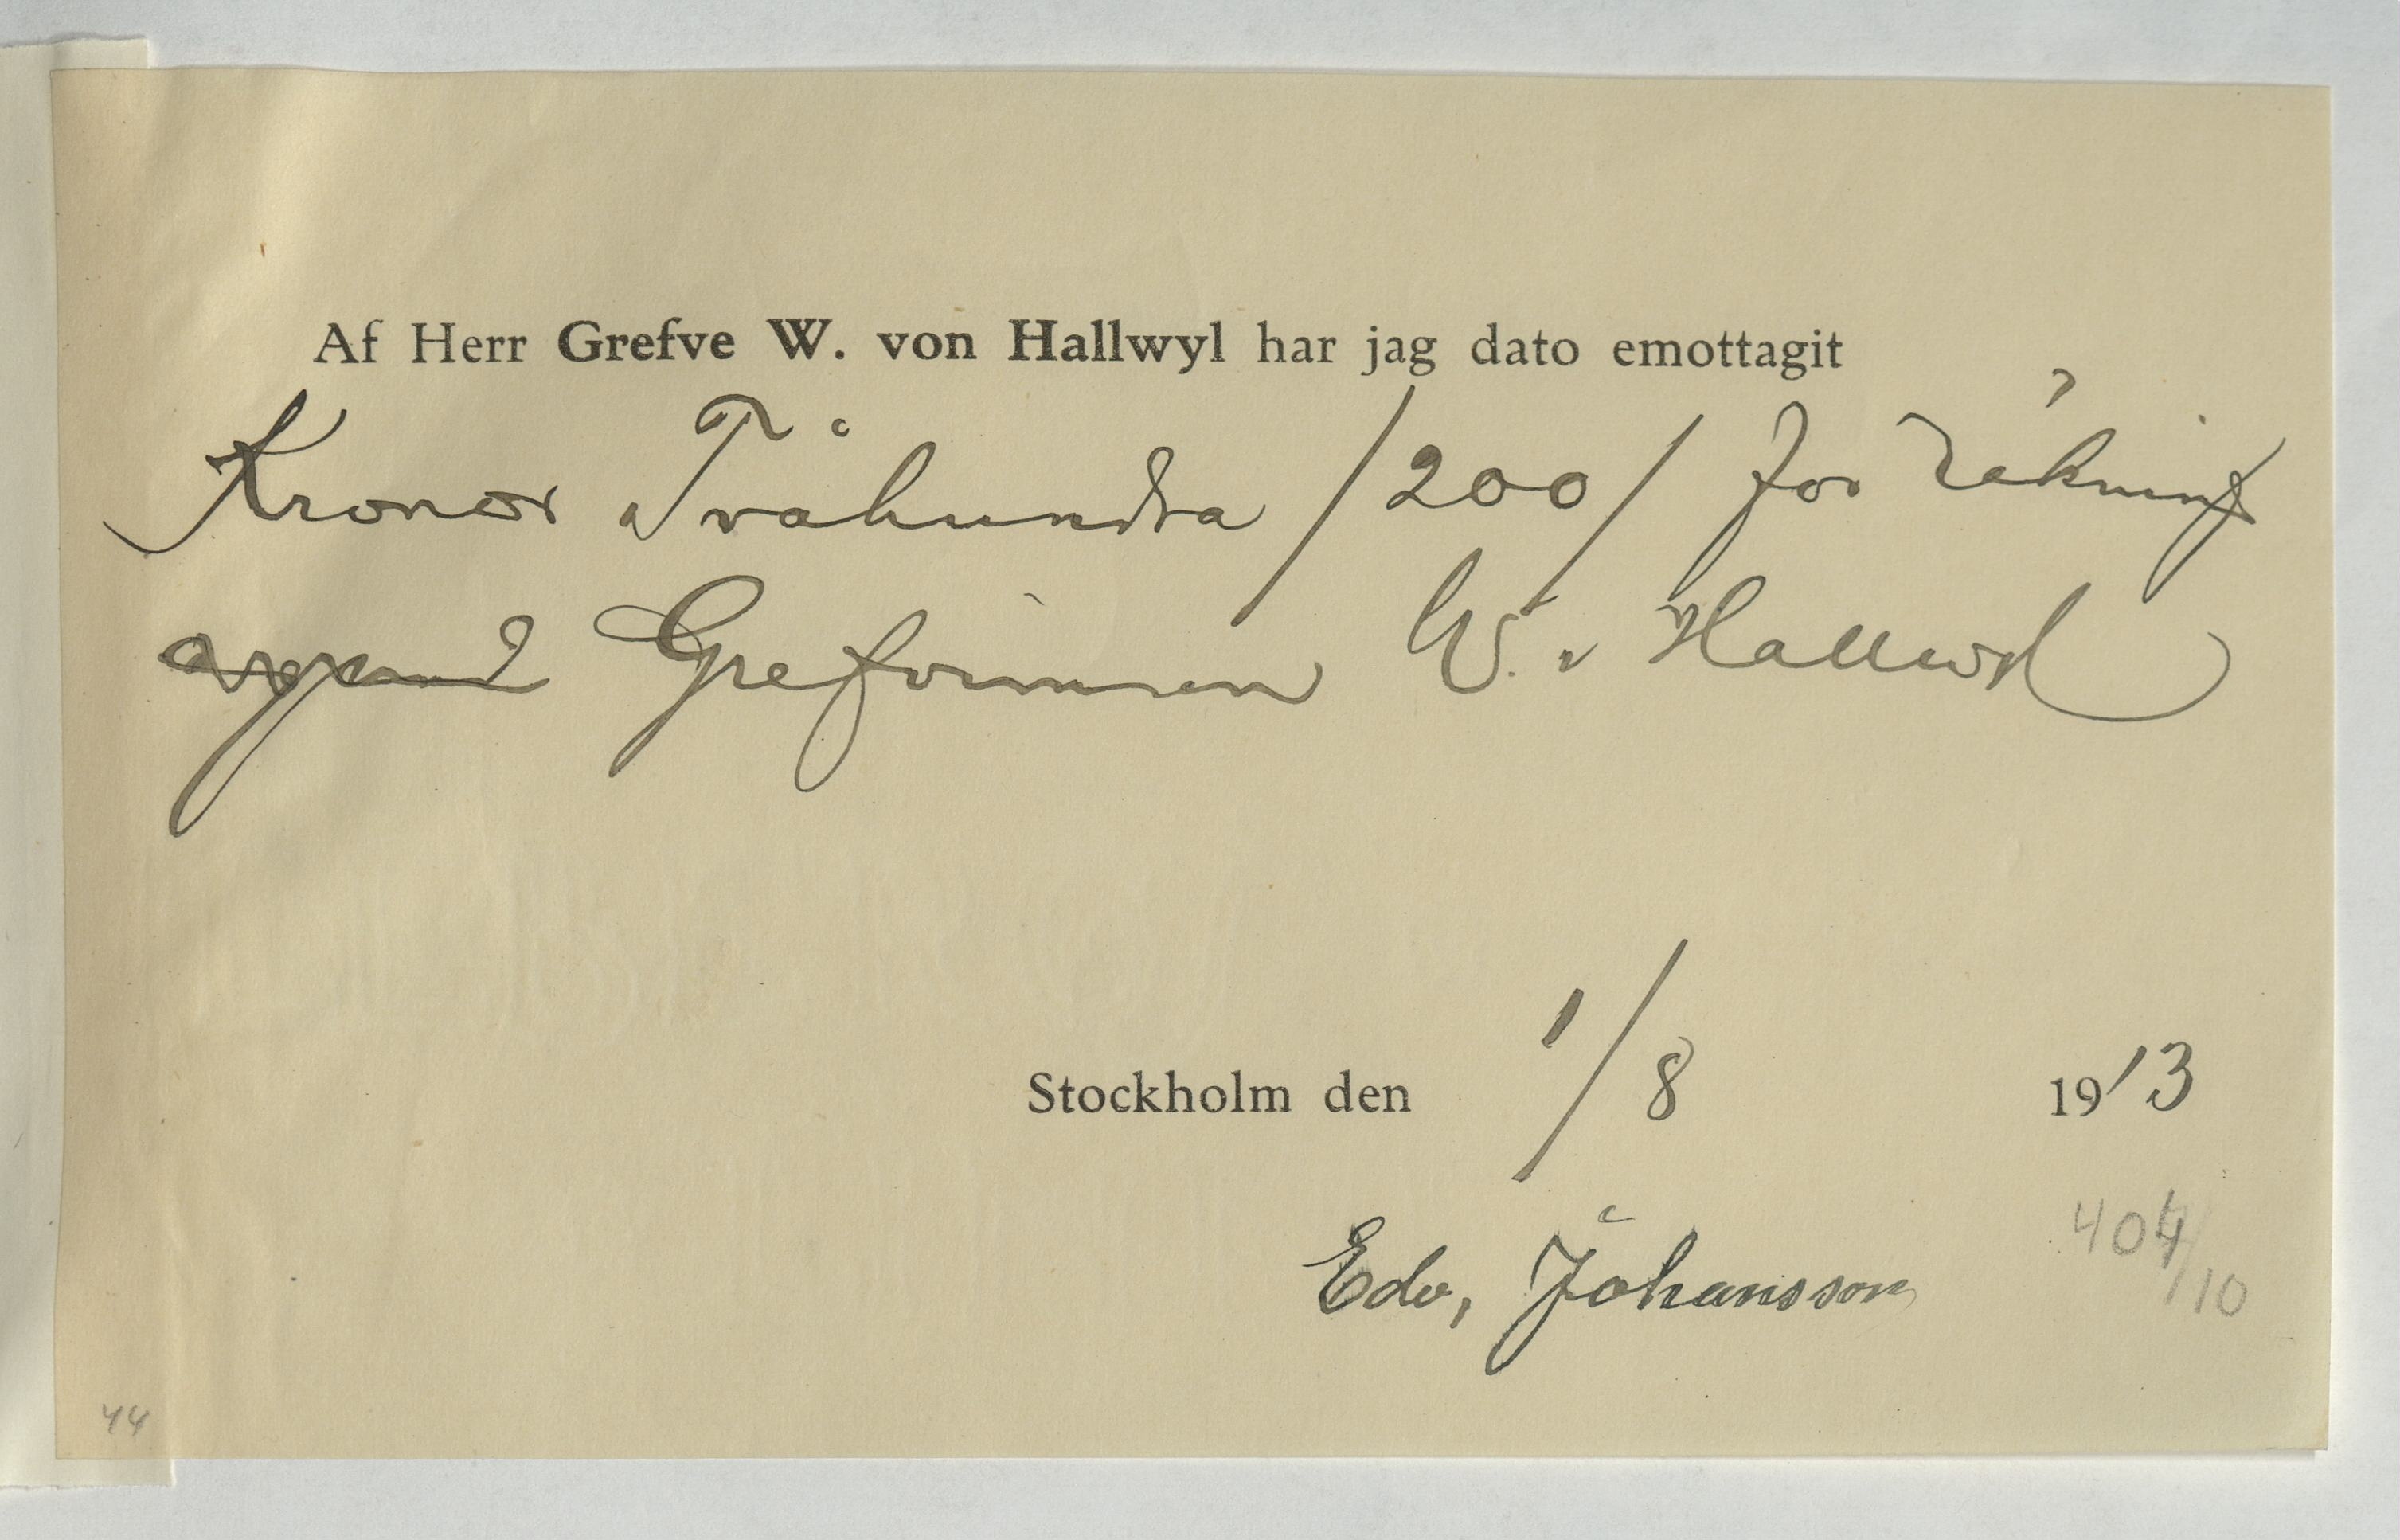 Af Herr Grefve W. von Hallwyl har jag dato emottagit
Kronor Tvåhundra /200/ for räkning
Grefvinnan W. v Hallwyl
Stockholm den 1/8 1913
Edv, Johansson
404/10
44